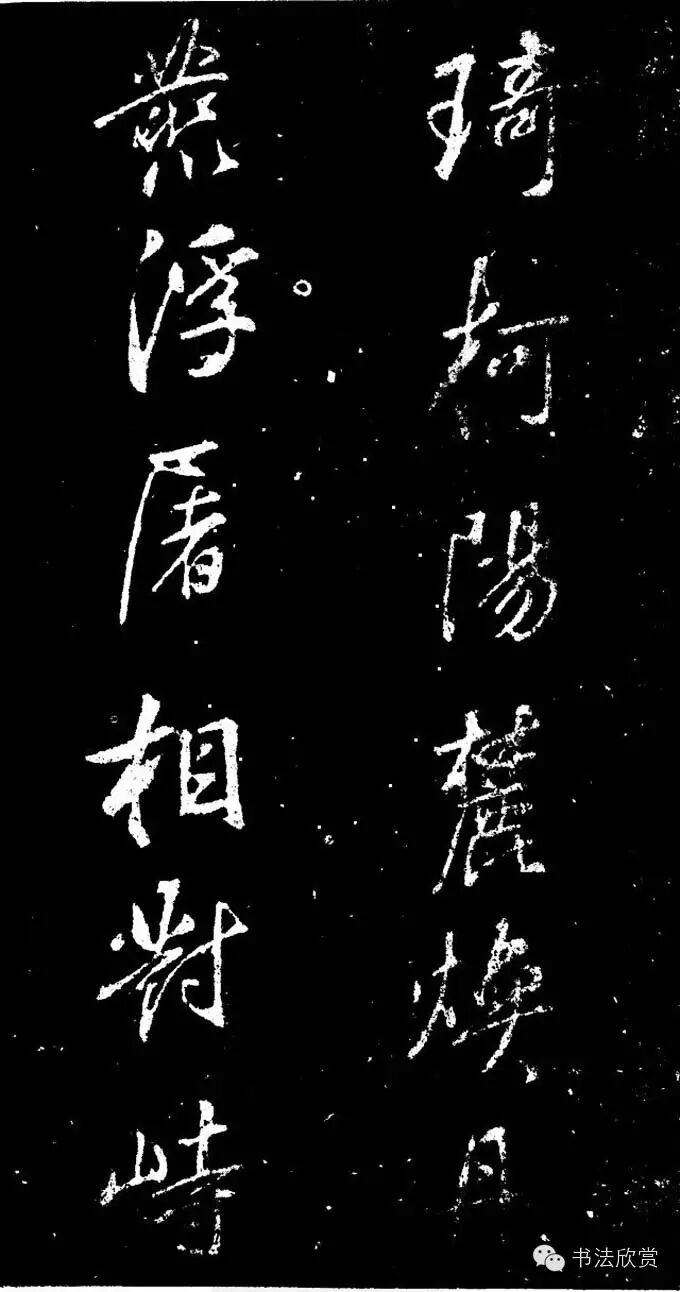 琦陽麓煥丹
叢浮屠相對峙
书法欣赏